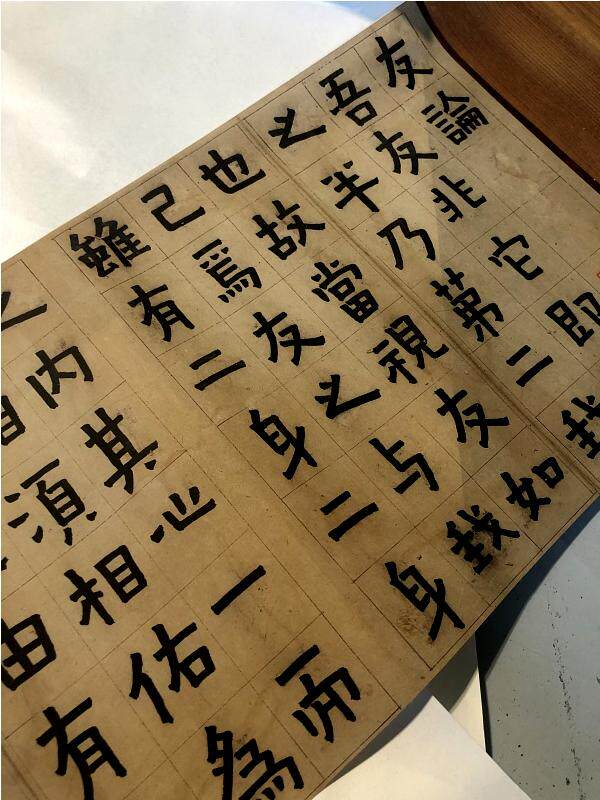 友論
吾友非它即
之半乃第二我
也故當視友如
己焉友之与我
雖有二身二身
之內其心一而
須相佑為
由有